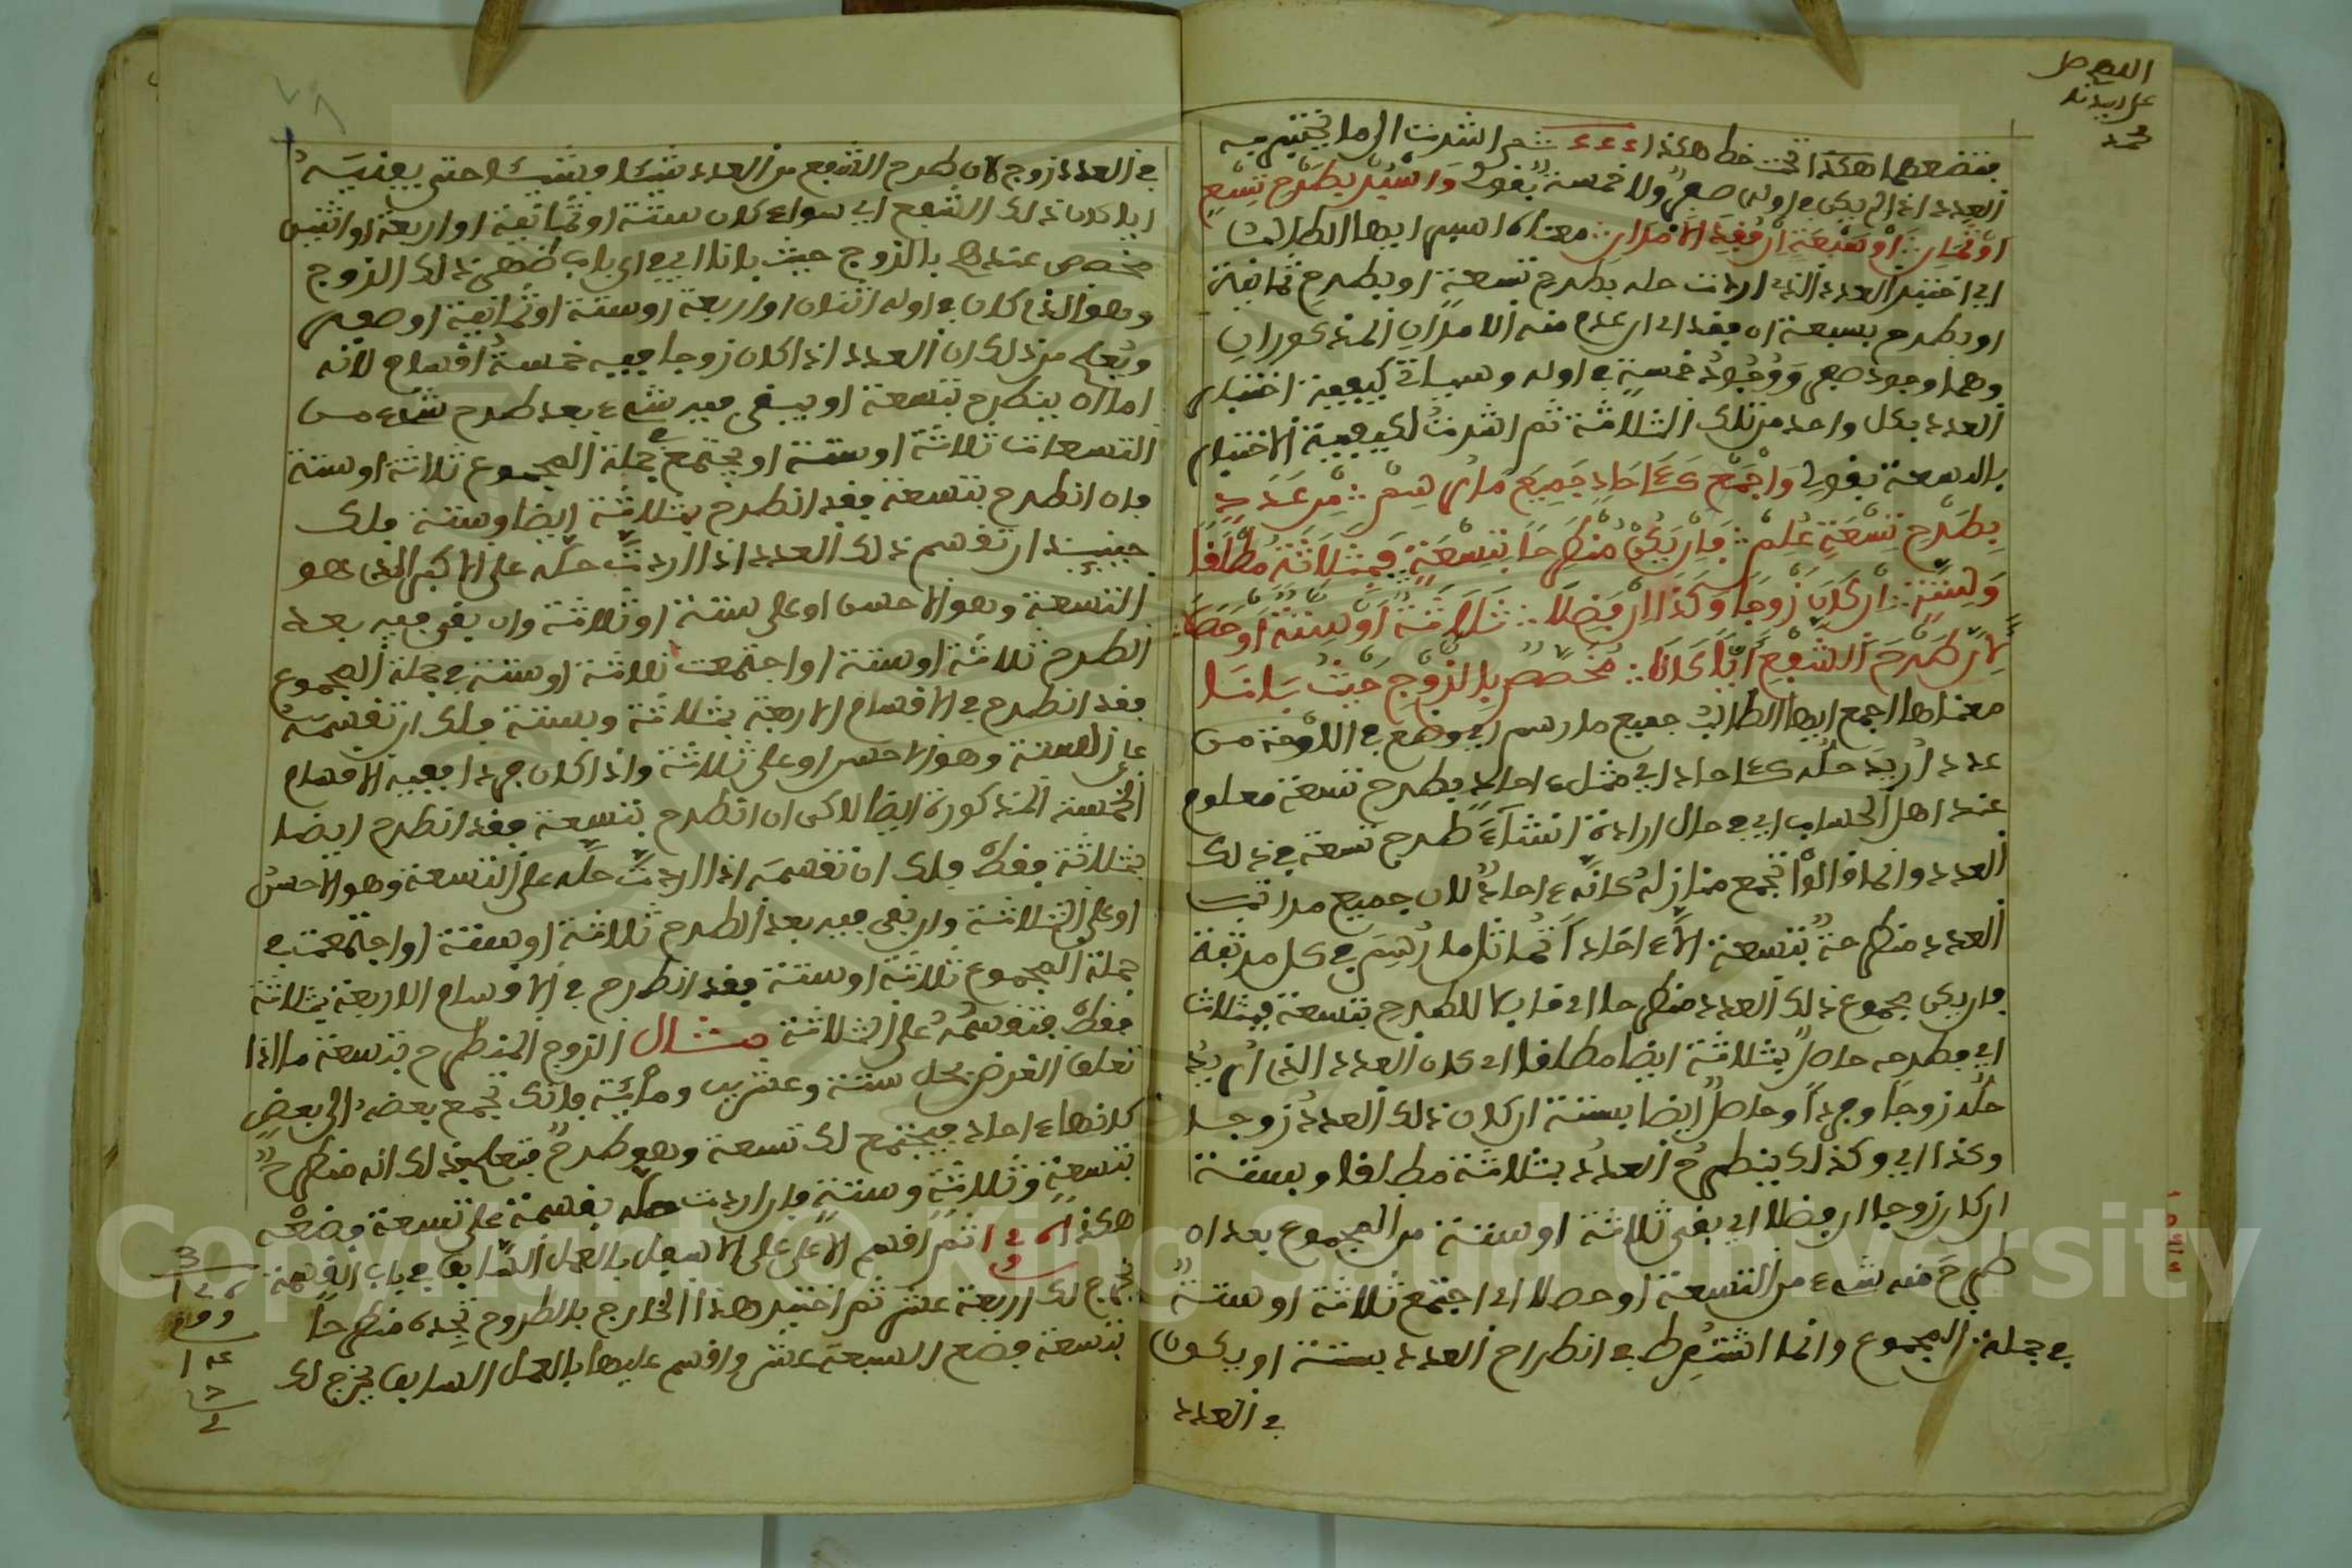 اللهم صل
على سيدنا
محمد
فتضعهما هكذا تحت خط هكذا ٤٤٤ ثم اشرت الى ما تختبر به
العدد اذا لم يكن في اوله صفر ولا خمسة بقولي واسبر بطرح تسع
او ثمان او سبعة ان فقد الامران معناه اسبر ايها الطالب
اي اختبر العدد الذي اردت حله بطرح تسعة او بطرح ثمانية
او بطرح سبعة ان فقد اي ان عدم منه الامران المذكوران
وهما وجود صفر ووجود خمسة في اوله وسياتي كيفية اختبار
العدد بكل واحد من تلك الثلاثة ثم اشرت لكيفية الاختبار
بالتسعة بقولي واجمع كـٔاحاد جميع ما رسم من عدد
بطرح تسعة علم فان يكن منطرحا بتسعة فبثلاثة مطلقا
وستة ان كان زوجا وكذا ان فضلا ثلاثة او ستة او حصلا
لان طرح الشفع ايا كانا مخصص بالزوج حيث بانا
معناها اجمع ايها الطالب جميع ما رسم اي وضع في اللوحة من
عدد اريد حله كـٔاحاد اي مثل ءاحاد بطرح تسعة معلوم
عند اهل الحساب اي في حال ارادة انشاء طرح تسعة في ذلك
العدد وانما قالوا تجمع منازله كانه ءاحاد لان جميع مراتب
العدد منطرحة بتسعة الا ءاحادا تماثل ما رسم في كل مرتبة
فان يكن مجموع ذلك العدد منطرحا اي قابلا للطرح بتسعة فبثلاث
اي فطرحه حاصل بثلاثة ايضا مطلقا اي كان العدد الذي اريد
حله زوجا او فردا وحاصل ايضا بستة ان كان ذلك العدد زوجا
وكذا اي وكذلك ينطرح العدد بثلاثة مطلقا وبستة
ان كان زوجا ان فضلا اي بقى ثلاثة او ستة من المجموع بعد ان
طرح منه شيء من التسعة او حصلا اي اجتمع ثلاثة او ستة
في جملة المجموع وانما اشترط في انطراح العدد بستة ان يكون
في العدد
في العدد زوج لان طرح الشفع من العدد شيئا فشيئا حتى يفنيه
ايا كان ذلك الشفع اي سواء كان ستة او ثمانية او اربعة او اثنين
مخصص عندهم بالزوج حيث بانا اي في اي باب ظهر ذلك الزوج
وهو الذي كان في اوله اثنان او اربعة او ستة او ثمانية او صفر
ويعلم من ذلك ان العدد اذا كان زوجا ففيه خمسة اقسام لانه
اما ان ينطرح بتسعة او يبقى فيه شيء بعد طرح شيء من
التسعات ثلاثة او ستة او يجتمع في جملة المجموع ثلاثة او ستة
فان انطرح بتسعة فقد انطرح بثلاثة ايضا وستة فلك
حينئذ ان تقسم ذلك العدد اذا اردت حله على الاكبر الذي هو
التسعة وهو الاحسن او على ستة او ثلاثة وان بقى فيه بعد
الطرح ثلاثة او ستة او اجتمعت ثلاثة او ستة في جملة المجموع
فقد انطرح في الاقسام الاربعة بثلاثة وبستة فلك ان تقسمه
على الستة وهو الاحسن او على ثلاثة واذا كان فردا ففيه الاقسام
الخمسة المذكورة ايضا لاكن ان انطرح بتسعة فقد انطرح ايضا
بثلاثة فقط فلك ان تقسمه اذا اردت حله على التسعة وهو الاحسن
او على الثلاثة وان بقى فيه بعد الطرح ثلاثة او ستة او اجتمعت في
جملة المجموع ثلاثة او ستة فقد انطرح في الاقسام الاربعة بثلاثة
فقط فتقسمه على الثلاثة مثال الزوج المنطرح بتسعة ما اذا
تعلق الغرض بحل ستة وعشرين ومائة فانك تجمع بعضه الى بعض
كانها ءاحاد فيجتمع لك تسعة وهو طرح فتعلم بذلك انه منطرح
بتسعة وثلاثة وستة فان اردت حله بقسمة على تسعة فضعه
هكذا ثم اقسم الاعلى على الاسفل بالعمل السابق في باب القسمة
يخرج لك اربعة عشر ثم اختبر هذا الخارج بالطروح تجده منطرحا
بتسعة فضع السبعة عشر واقسم عليها بالعمل السابق يخرج لك